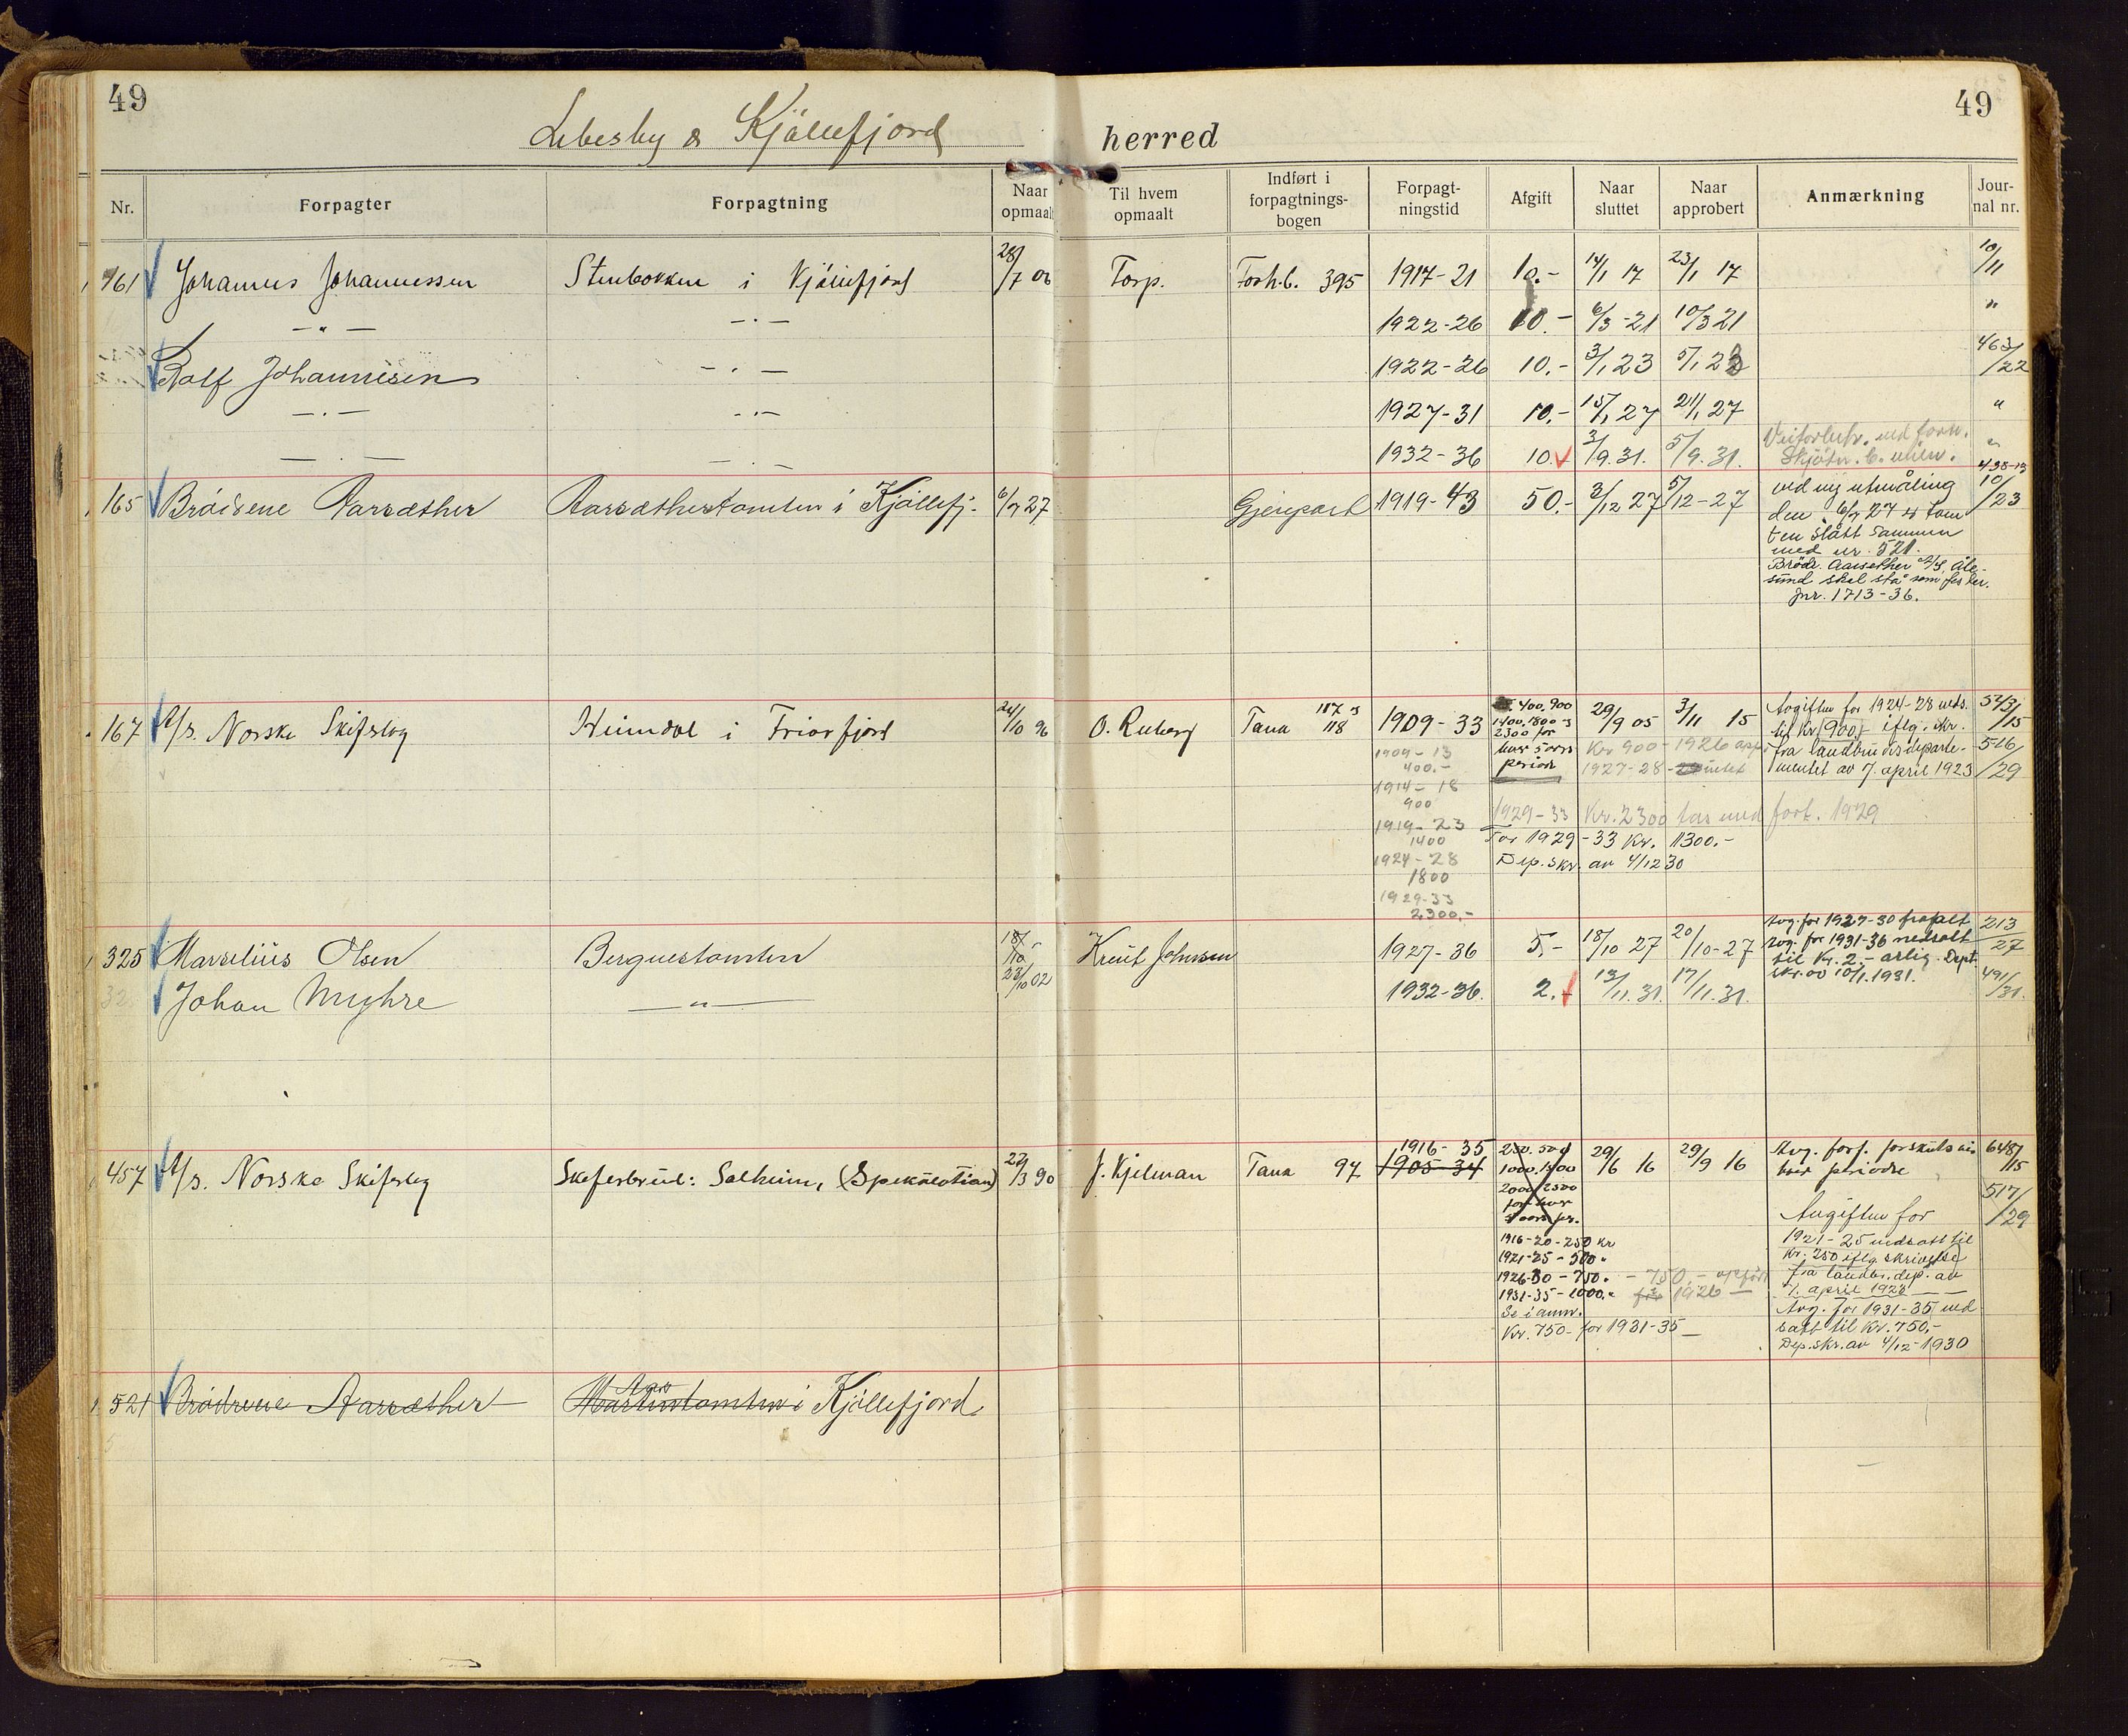 49
49
Lebesby & Kjöllefjord herred
Nr.
Forpagter
Forpagtning
Naar opmaalt
Til hvem opmaalt
Indført i forpagtnings-bogen
Forpagt-ningstid
Afgift
Naar sluttet
Naar approbert
Anmærkning
Jour-nal nr.
161 Johannes Johannessen Stenbokken i Kjöllefjord 28/7 06 Torp. Forh.b. 395 1917-21 10.- 14/1 17 23/1 17 10/11
—„— —.— 1922-26 10.- 6/3-21 10/3 21 "
Rolf Johannesen —.— 1922-26 10.- 3/1 23 5/1 23 463/22
—.— —.— 1927-31 10.- 15/1 27 21/1 27 "
—.— —.— 1932-36 10.- 3/9.31. 5/9.31. "
165 Brödrene Aarsæther Aarsæthertomten i Kjöllefj. 6/7 27 Gjenpart 1919-43 50.- 3/12 27 5/12-27 10/23
ved ny utmåling
den 6/7 27 er tom
ten slått sammen
med nr. 521.
Brödr. Aarsæther A/S, Åle-
sund skal stå som fester.
Jnr. 1713-36.
167 A/s. Norske Skiferbrug Heimdal i Friarfjord 24/10 96 O. Ruberg Tana 117 118 1909-33 400, 900 29/9 05 3/11 15 543/15
1400, 1800 og
2300 for
hver 5 aars
periode
Avgiften for 1924-28 neds.
til kr. 900,- iflg. skr.
fra landbruksdeparte-
mentet av 7. april 1923
516/29
Kr 900 - 1926
1927-28 - intet
1909-13
400.-
1914-18
900
1919-23
1400
1924-28
1800
1929-33
2300.-
1929-33 Kr. 2300 tas med forf. 1929
For 1929-33 Kr. 1300.-
Dep. skr. av 4/12 30
325 Marselius Olsen Bergnestomten 18/10 Knut Johnsen 1927-36 5.- 18/10 27 20/10-27 213/27
Avg. for 1927-30 frafalt
Avg. for 1931-36 nedsatt
til kr. 2.- årlig. Dept.
skr. av 10/1.1931.
Johan Myhre —„— 23/10 02 1932-36. 2.- 13/11.31. 17/11.31. 491/31.
457 A/s. Norske Skiferbrug Skiferbrud: Solheim, (Spekulation) 22/3 90 J. Kjelman Tana 97 1916-35 29/6 16 29/9 16 648/15
1905-34
250. 500
1000. 1500
2000 2500
for hver
5 aars per.
1916-20-250 kr
1921-25-500 "
1926-30-750. - 750.-
1931-35-1000." 1926
Se i anm.
Kr. 750- for 1931-35
Avg. forf. forskuds
hver periode
517/29
Avgiften for
1921-25 nedsatt til
kr. 250 iflg. skrivelse
fra landbr. dep. av
7. april 1923
Avg. for 1931-35 ned
satt til kr. 750,-
Dep. skr. av 4/12-1930
521 Brödrene Aarsæther i Kjöllefjord